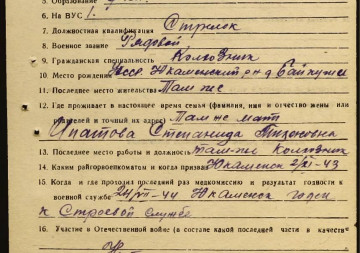 5. Образование
6. На ВУС 1.
7. Должностная квалификация Стрелок
8. Военное звание Рядовой
9. Гражданская специальность Колхозник
10. Место рождения Юкаменский р-н д
11. Последнее место жительства Там же
12. Где проживает в настоящее время семья (фамилия, имя и отчество жены или
родителей и точный их адрес) Там же мать
Ипатова Степанида Тихоновна
13. Последнее место работы и должность там-же Колхозник
14. Каким райгорвоенкоматом и когда призван Юкаменск 2/XI-43
15. Когда и где проходил последний раз медкомиссию и результат годности к
военной службе 24/VII-44 Юкаменск годен
к Строевой службе
16. Участие в Отечественной войне (в составе какой последней части в качестве